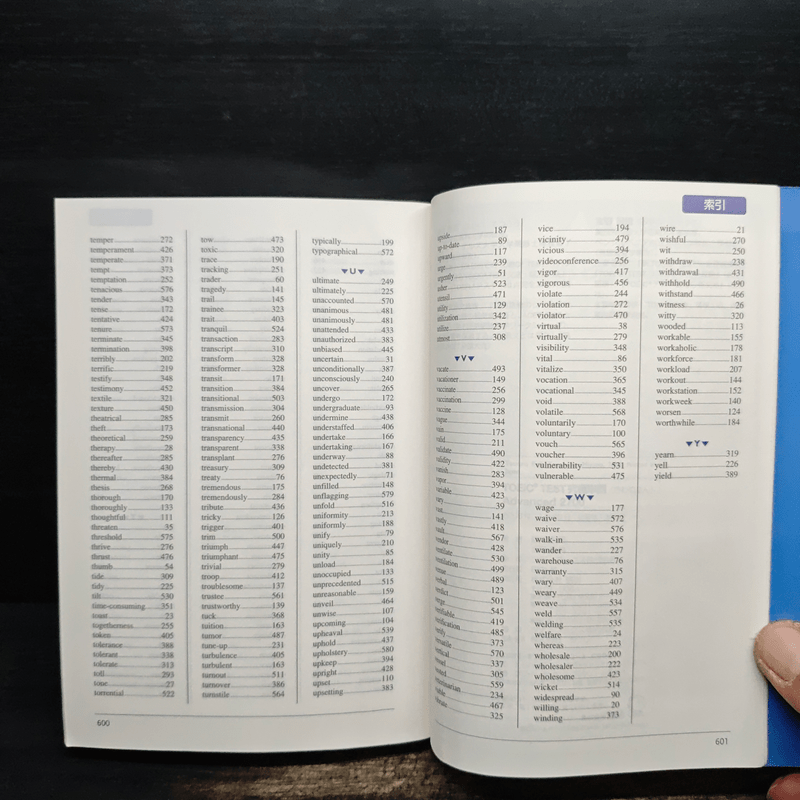 temper 272
temperament 426
temperate 371
tempt 373
temptation 252
tenacious 576
tender 343
tense 172
tentative 424
tenure 573
terminate 345
termination 398
terribly 202
terrific 219
testify 348
testimony 452
textile 321
texture 450
theatrical 285
theft 173
theoretical 259
therapy 28
thereafter 285
thereby 430
thermal 384
thesis 268
thorough 170
thoroughly 133
thoughtful 111
threaten 35
threshold 575
thrive 276
thrust 476
thumb 54
tide 309
tidy 225
tilt 530
time-consuming 351
toast 23
togetherness 255
token 405
tolerance 388
tolerant 338
tolerate 313
toll 293
tone 27
torrential 522
tow 473
toxic 320
trace 190
tracking 251
trader 60
tragedy 141
trail 145
trainee 323
trait 403
tranquil 524
transaction 283
transcript 310
transform 328
transformer 328
transit 171
transition 384
transitional 503
transmission 304
transmit 260
transnational 440
transparency 435
transparent 338
transplant 276
treasury 309
treaty 76
tremendous 175
tremendously 284
tribute 436
tricky 126
trigger 401
trim 500
triumph 447
triumphant 475
trivial 279
troop 412
troublesome 137
trustee 561
trustworthy 139
tuck 368
tuition 163
tumor 487
tune-up 231
turbulence 405
turbulent 163
turnout 511
turnover 386
turnstile 564
typically 199
typographical 572
▼U▼
ultimate 249
ultimately 225
unaccounted 570
unanimous 481
unanimously 481
unattended 433
unauthorized 383
unbiased 445
uncertain 31
unconditionally 387
unconsciously 240
uncover 265
undergo 172
undergraduate 93
undermine 438
understaffed 406
undertake 166
undertaking 167
underway 88
undetected 381
unexpectedly 71
unfilled 148
unflagging 579
unfold 516
uniformity 213
uniformly 188
unify 79
uniquely 210
unity 85
unload 184
unoccupied 133
unprecedented 515
unreasonable 159
unveil 464
unwise 107
upcoming 104
upheaval 539
uphold 437
upholstery 580
upkeep 394
upright 428
upset 110
upsetting 383
600
索引
187
up-to-date 89
upward 117
urge 239
urgently 51
usher 523
utensil 471
utility 129
utilization 342
utilize 237
utmost 308
▼V▼
vacate 493
vacationer 149
vaccinate 256
vaccination 299
vaccine 128
vague 344
vain 175
valid 211
validate 490
validity 422
vanish 283
vapor 394
variable 423
vary 39
vast 141
vastly 418
vault 567
vendor 428
ventilate 530
ventilation 499
venue 489
verbal 123
verdict 501
verge 545
verifiable 419
verification 485
verify 373
versatile 570
vertical 337
vessel 305
vested 559
veterinarian 234
viable 467
vibrate 325
vice 194
vicinity 479
vicious 394
videoconference 256
vigor 417
vigorous 456
violate 244
violation 272
violator 470
virtual 38
virtually 279
visibility 348
vital 86
vitalize 350
vocation 365
vocational 345
void 388
volatile 568
voluntarily 170
voluntary 100
vouch 565
voucher 396
vulnerability 531
vulnerable 475
▼W▼
wage 177
waive 572
waiver 576
walk-in 535
wander 227
warehouse 76
warranty 315
wary 407
weary 449
weave 534
weld 557
welding 535
welfare 24
whereas 223
wholesale 200
wholesaler 222
wholesome 423
wicket 514
widespread 90
willing 20
winding 373
wire 21
wishful 270
wit 250
withdraw 238
withdrawal 431
withhold 490
withstand 466
witness 26
witty 320
wooded 113
workable 155
workaholic 178
workforce 181
workload 207
workout 144
workstation 152
workweek 140
worsen 124
worthwhile 184
▼Y▼
yearn 319
yell 226
yield 389
601